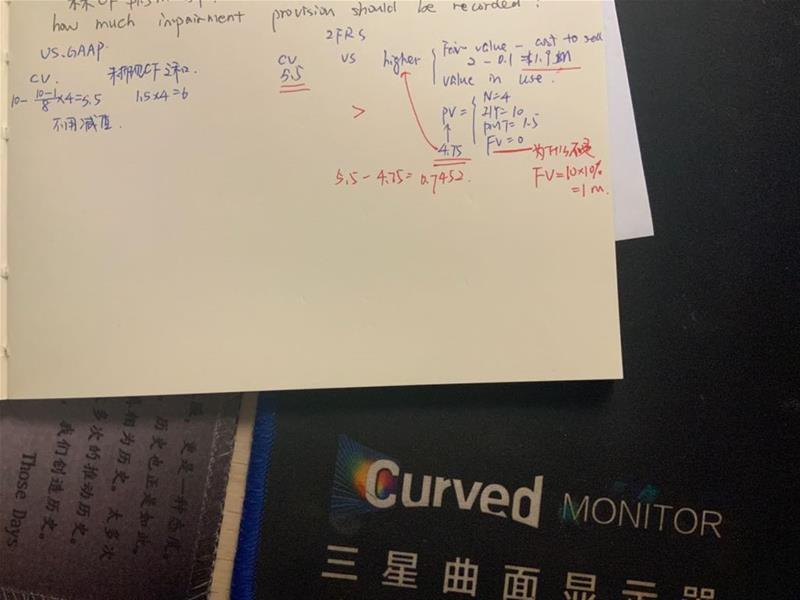 how much impairment provision should be recorded?
US.GAAP
CV.
10 - 10-1/8 ×4=5.5
未折现CF之和.
1.5×4=6
不用减值.
IFRS
CV
5.5
VS
>
higher
Fair value - cost to sell
2 - 0.1 = $1.9 m
value in use.
PV =
4.75
N=4
I/Y=10
PMT=1.5
FV=0
5.5 - 4.75 = 0.7452.
FV=10×10%
=1 m.
更是一种态度。
历史也正是如此，
相为历史，太多次
太多次的推动历史。
我们创造历史。
Those Days
Curved MONITOR
三星曲面显示器